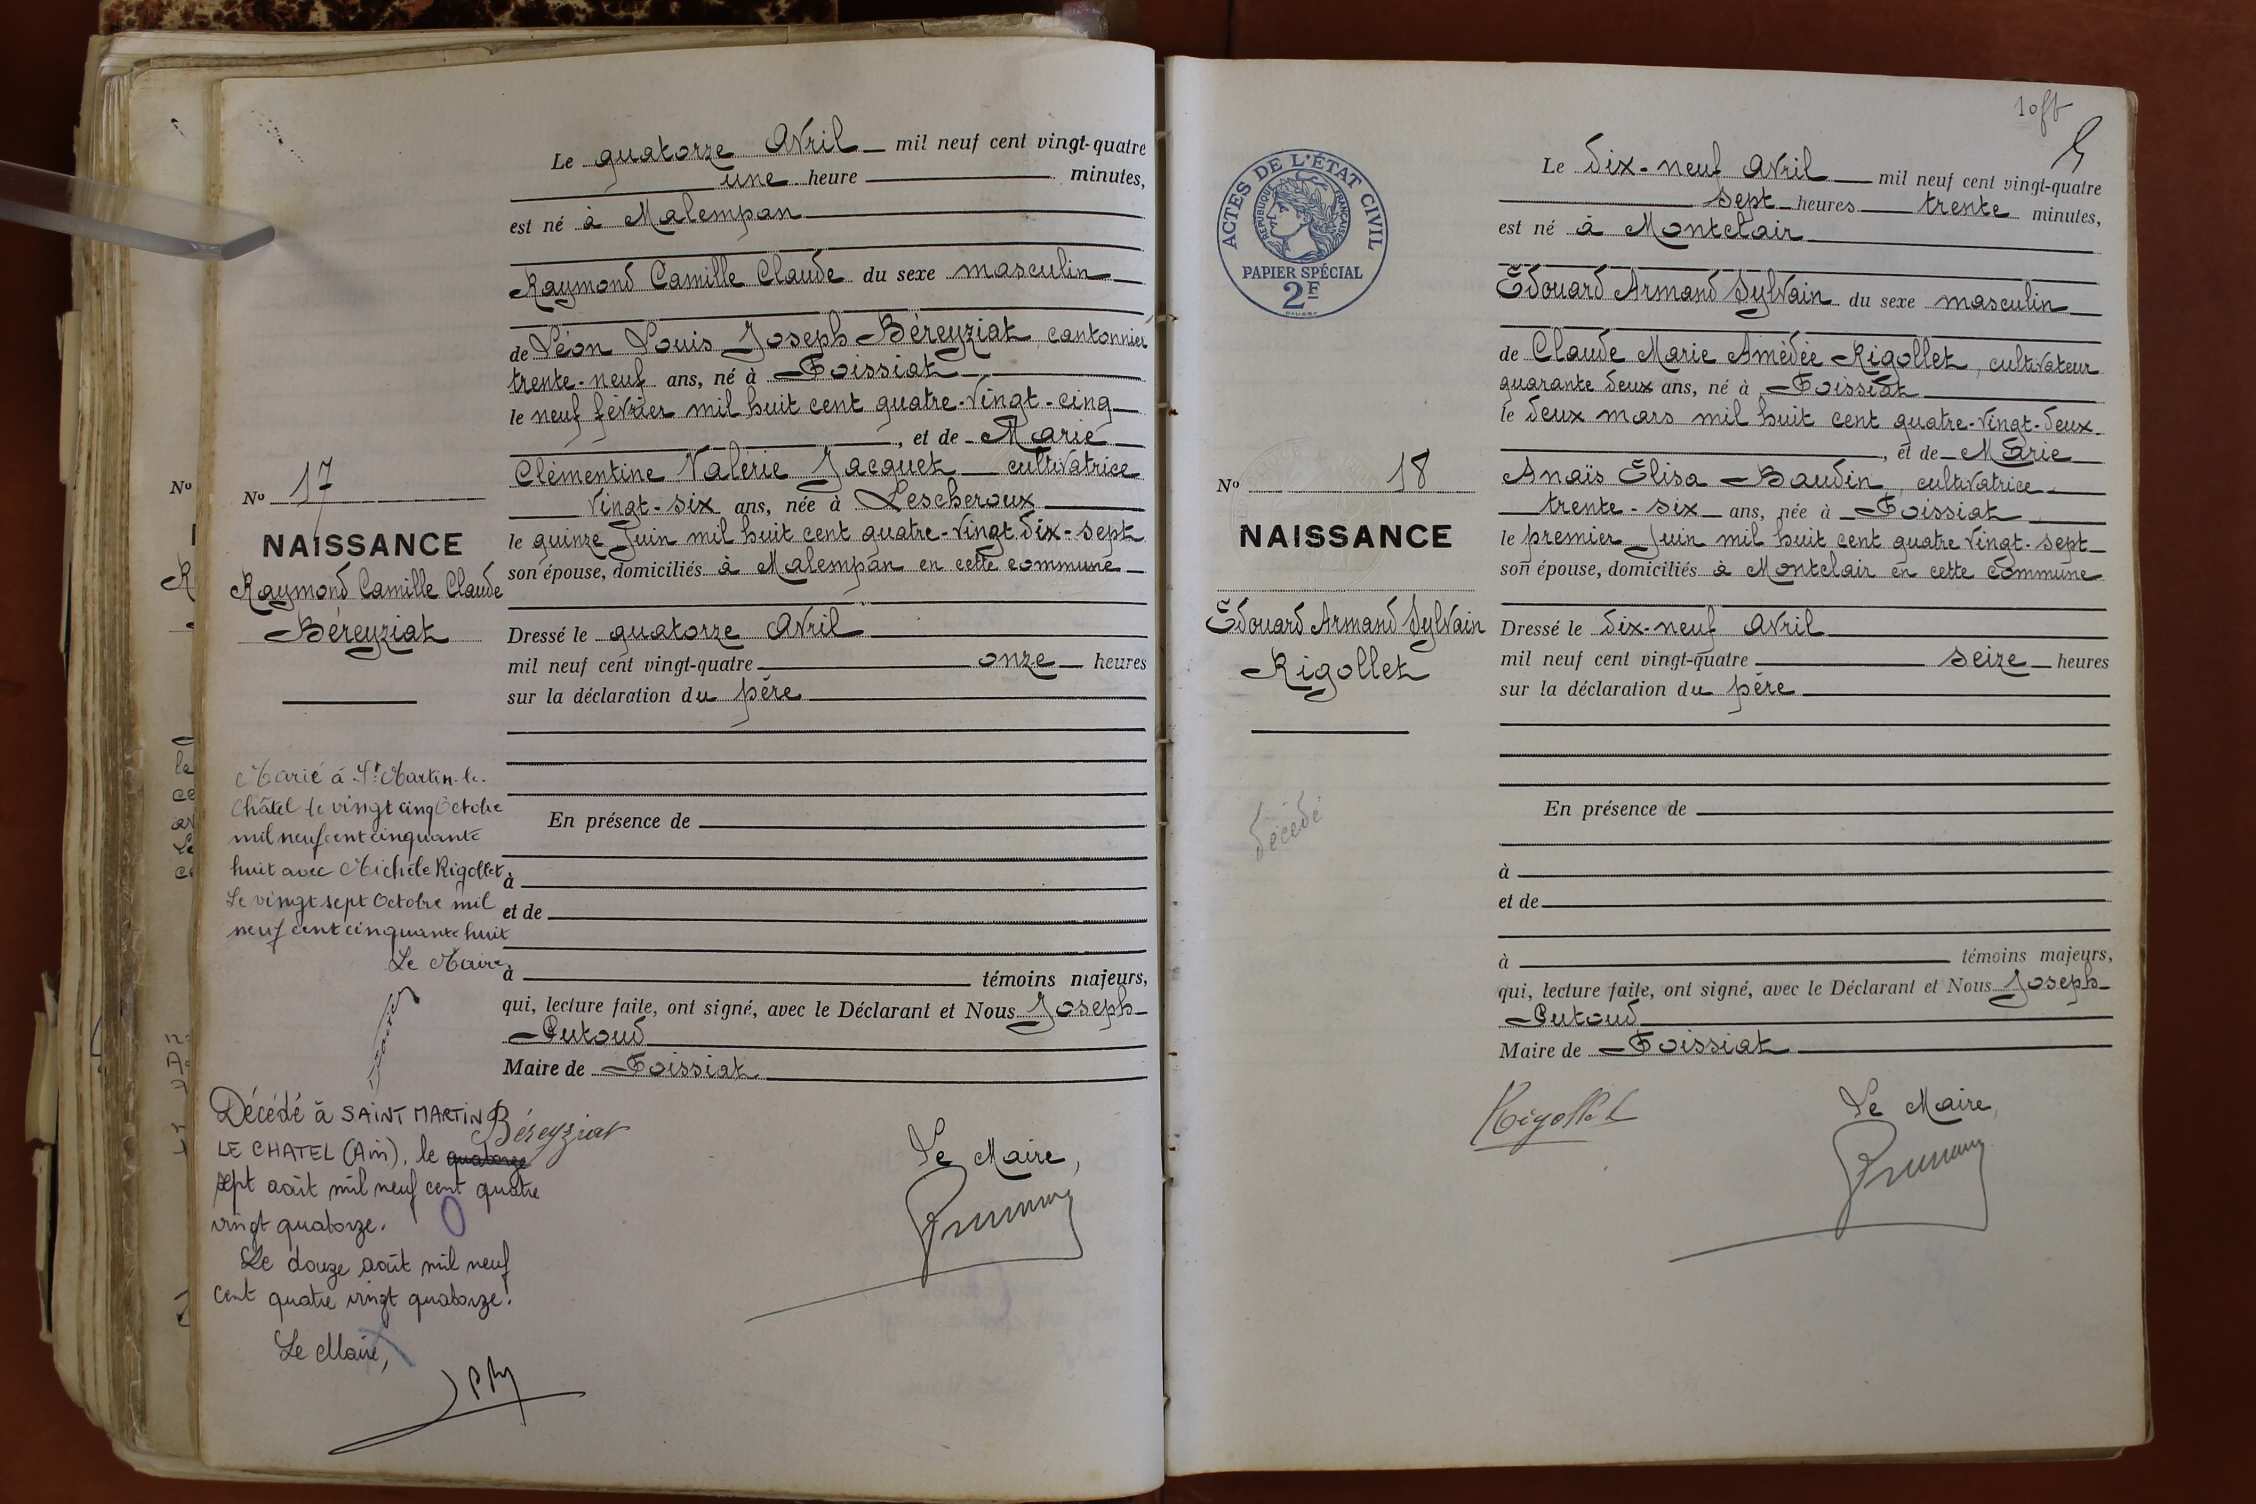 Le quatorze Avril mil neuf cent vingt-quatre
une heure minutes,
est né à Malempan
Raymond Camille Claude du sexe masculin
de Léon Louis Joseph Béreyziat, cantonnier
trente-neuf ans, né à Foissiat
le neuf février mil huit cent quatre-vingt-cinq
, et de Marie
Clémentine Valérie Jacquet cultivatrice
vingt-six ans, née à Lescheroux
le quinze Juin mil huit cent quatre-vingt dix-sept
son épouse, domiciliés à Malempan en cette commune
Dressé le quatorze Avril
mil neuf cent vingt-quatre onze heures
sur la déclaration du père
En présence de
à
et de
à témoins majeurs,
qui, lecture faite, ont signé, avec le Déclarant et Nous Joseph
Putoud
Maire de Foissiat
Béreyziat
Le Maire,
No 17
NAISSANCE
Raymond Camille Claude
Béreyziat
Marié à St Martin-le-
Châtel le vingt cinq Octobre
mil neuf cent cinquante
huit avec Michèle Rigollet
Le vingt sept Octobre mil
neuf cent cinquante huit
Le Maire,
Décédé à SAINT MARTIN
LE CHATEL (Ain), le quatorze
sept août mil neuf cent quatre
vingt quatorze.
Le douze août mil neuf
cent quatre vingt quatorze.
Le Maire,
ACTES DE L'ÉTAT CIVIL
RÉPUBLIQUE FRANÇAISE
PAPIER SPÉCIAL
2F
No 18
NAISSANCE
Edouard Armand Sylvain
Rigollet
décédé
Le dix-neuf Avril mil neuf cent vingt-quatre
sept heures trente minutes,
est né à Montclair
Edouard Armand Sylvain du sexe masculin
de Claude Marie Amédée Rigollet, cultivateur
quarante deux ans, né à Foissiat
le deux mars mil huit cent quatre-vingt-deux
, et de Marie
Anaïs Elisa Baudin, cultivatrice
trente-six ans, née à Foissiat
le premier Juin mil huit cent quatre vingt-sept
son épouse, domiciliés à Montclair en cette commune
Dressé le dix-neuf Avril
mil neuf cent vingt-quatre seize heures
sur la déclaration du père
En présence de
à
et de
à témoins majeurs,
qui, lecture faite, ont signé, avec le Déclarant et Nous Joseph
Putoud
Maire de Foissiat
Rigollet
Le Maire,